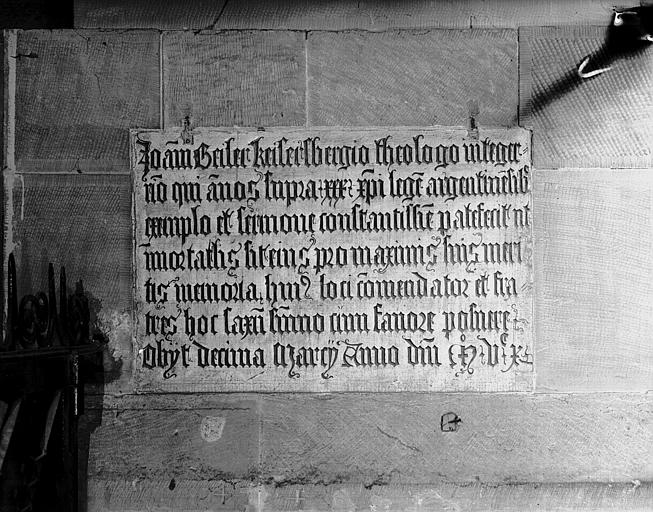 Joāni Geiler keisersbergio theologo integer-
rīo qui āños supra xxx xp̄i legē argentinēsibꝰ
exemplo et sermone constantissīe patefecit nt
īmortalis sit eius pro maximis suis meri
tis memoria, huiꝰ loci cōmendator et fra
tres hoc saxū sūmo cum fauore posuere
Obyt decima Marcÿ Anno dn̄i M.V.X